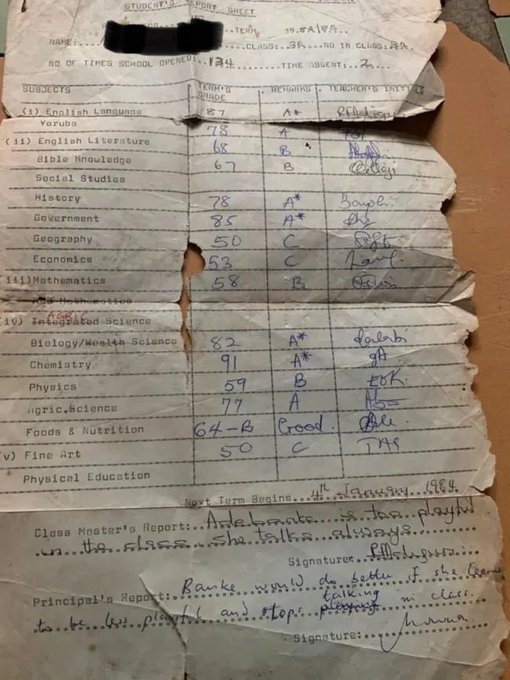 STUDENT'S REPORT SHEET
TERM 19
NAME: CLASS: 3A NO IN CLASS:
NO OF TIMES SCHOOL OPENED: 134 TIME ABSENT: 2
SUBJECTS TERM'S GRADE REMARKS TEACHER'S INITIAL
(i) English Language 87 A*
Yoruba 78 A
(ii) English Literature 68 B
Bible Knowledge 67 B
Social Studies
History 78 A*
Government 85 A*
Geography 50 C
Economics 53 C
(iii) Mathematics 58 B
Mathematics
(iv) Integrated Science
AGRIC
Biology/Health Science 82 A*
Chemistry 91 A*
Physics 59 B
Agric.Science 77 A
Foods & Nutrition 64-B Good
(v) Fine Art 50 C
Physical Education
Next Term Begins 4th January 1984
Class Master's Report: Adebanke is too playful
in the class. she talks always
Signature:
Principal's Report: Banke would do better if she learns
to be less playful and stops playing talking in class.
Signature: